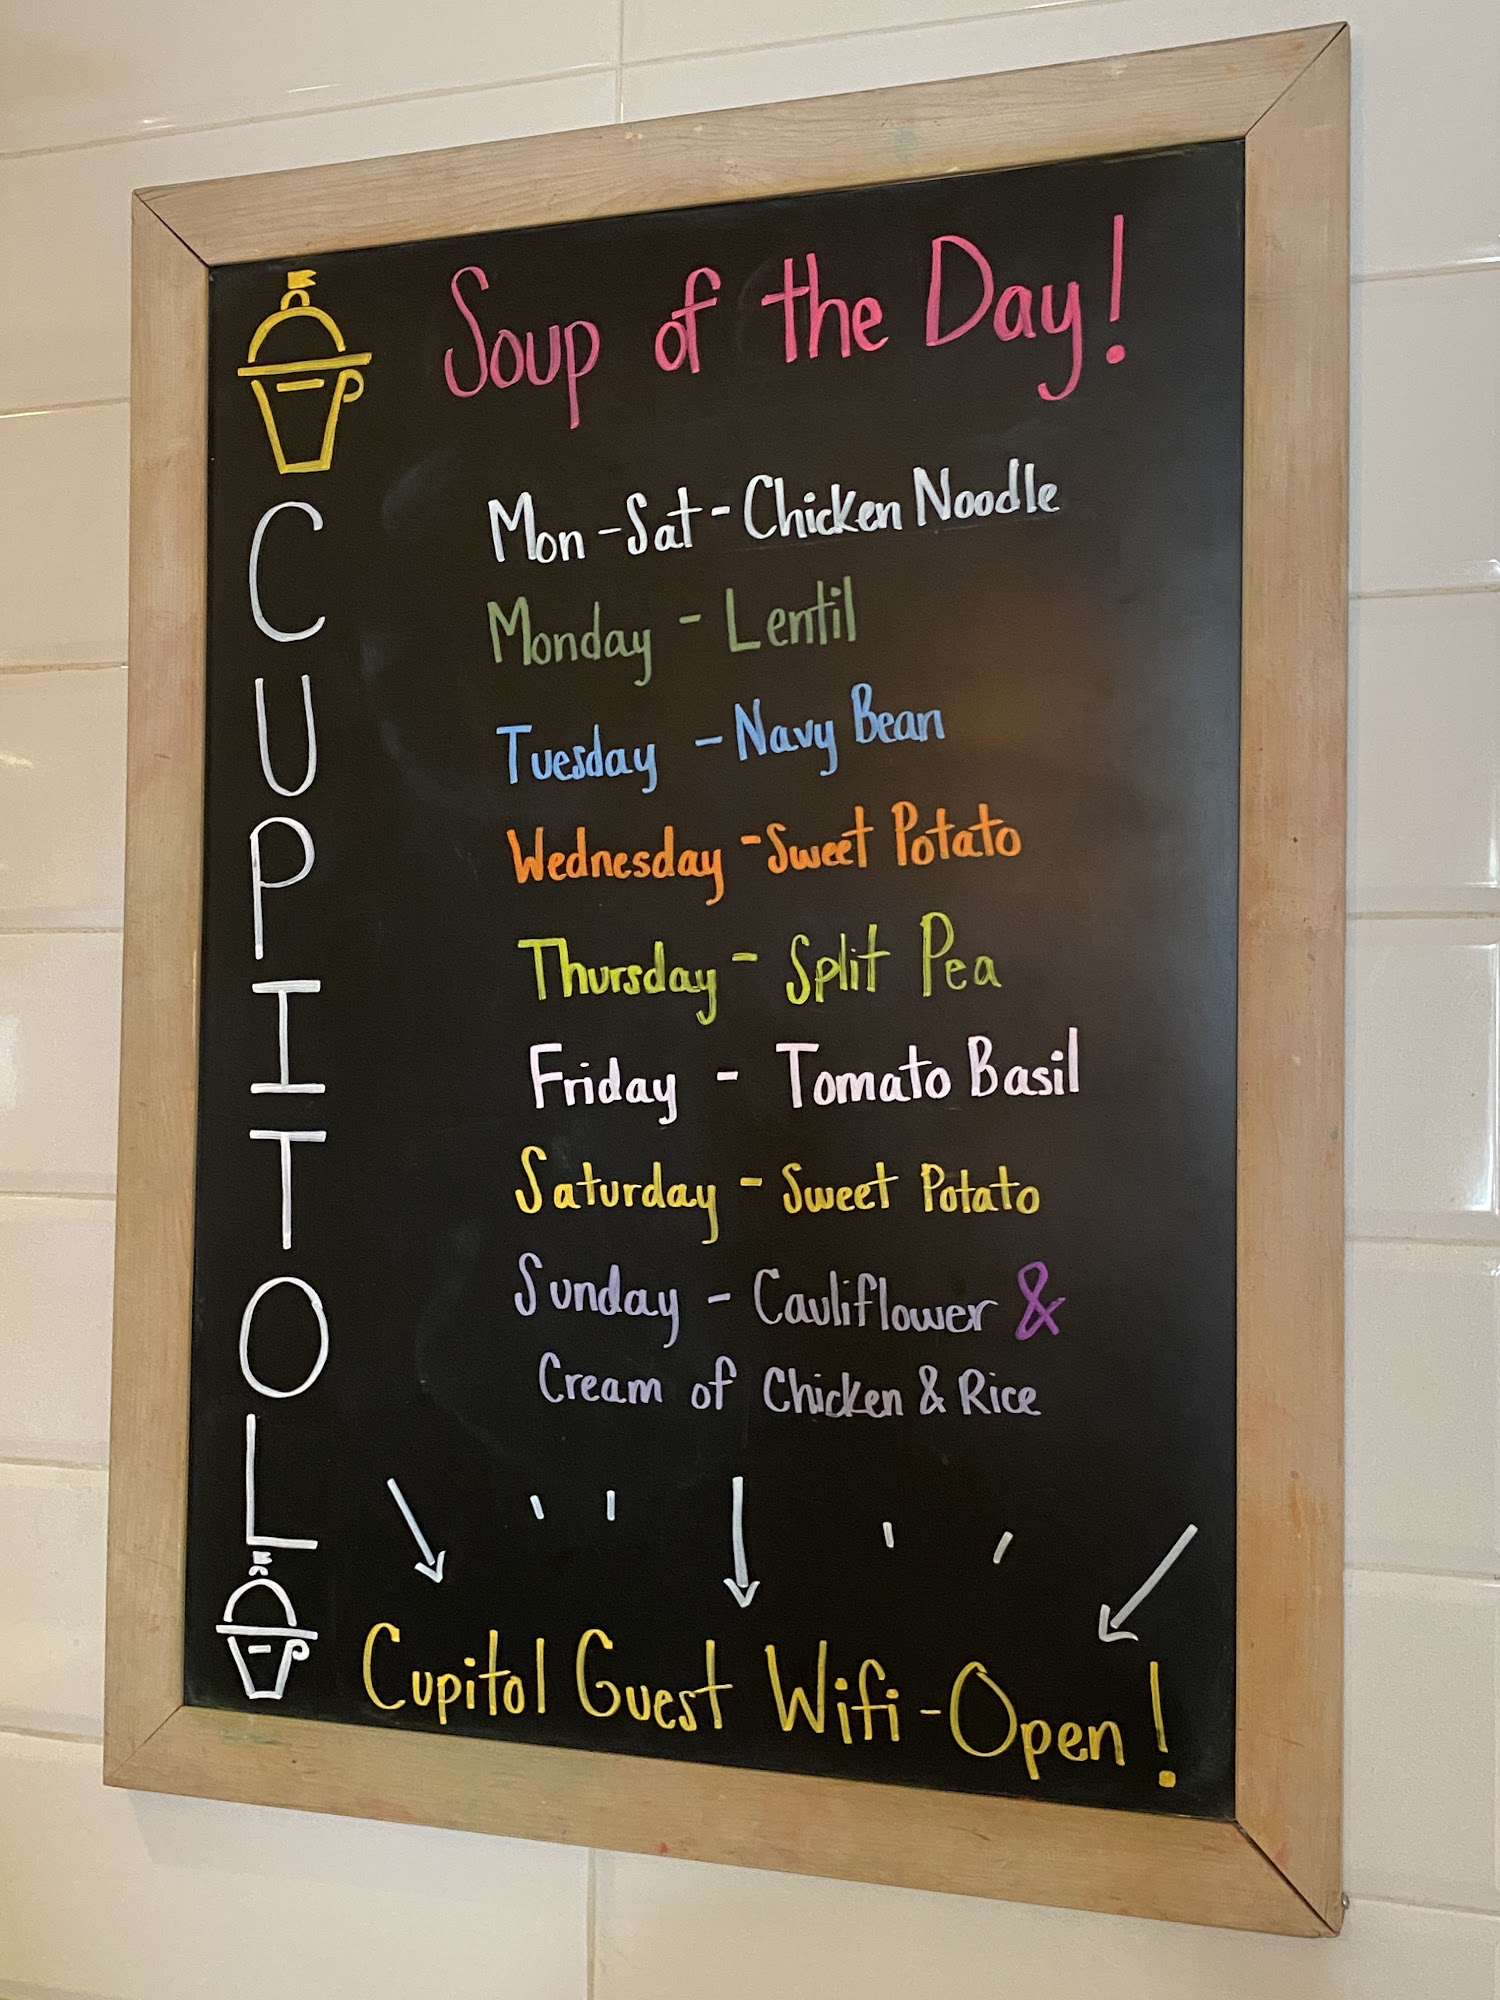 Soup of the Day!
Mon-Sat-Chicken Noodle
Monday - Lentil
Tuesday - Navy Bean
Wednesday - Sweet Potato
Thursday - Split Pea
Friday - Tomato Basil
Saturday - Sweet Potato
Sunday - Cauliflower &
Cream of Chicken & Rice
CUPITOL
Cupitol Guest Wifi-Open!